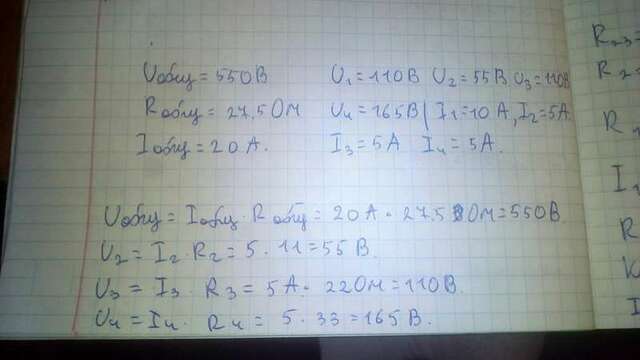 Uобщ = 550В U1 = 110В U2 = 55В U3 = 110В
Rобщ = 27,5 Ом U4 = 165В | I1 = 10 А, I2 = 5А
Iобщ = 20 А. I3 = 5А I4 = 5А.
Uобщ = Iобщ · Rобщ = 20 А · 27,5 Ом = 550В
U2 = I2 · R2 = 5 · 11 = 55 В.
U3 = I3 · R3 = 5А · 22Ом = 110В.
U4 = I4 · R4 = 5 · 33 = 165 В.
R23 =
R2 =
R
I
R
I